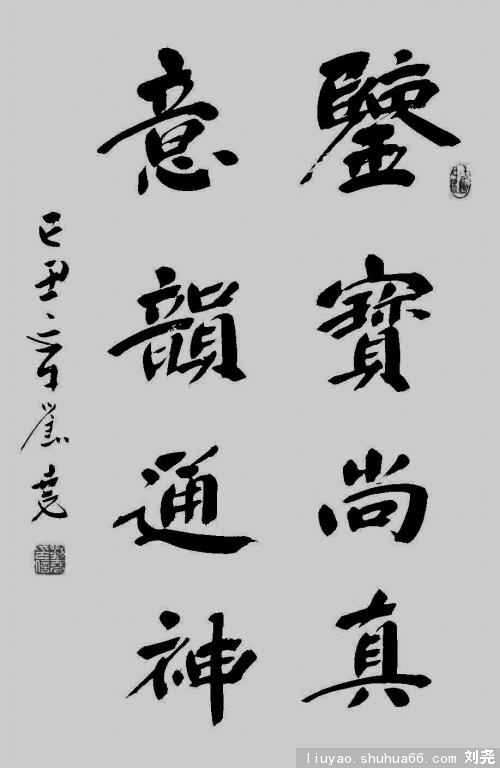 鑒寶尚真
意韻通神
己丑年堯
liuyao.shuhua66.com 刘尧